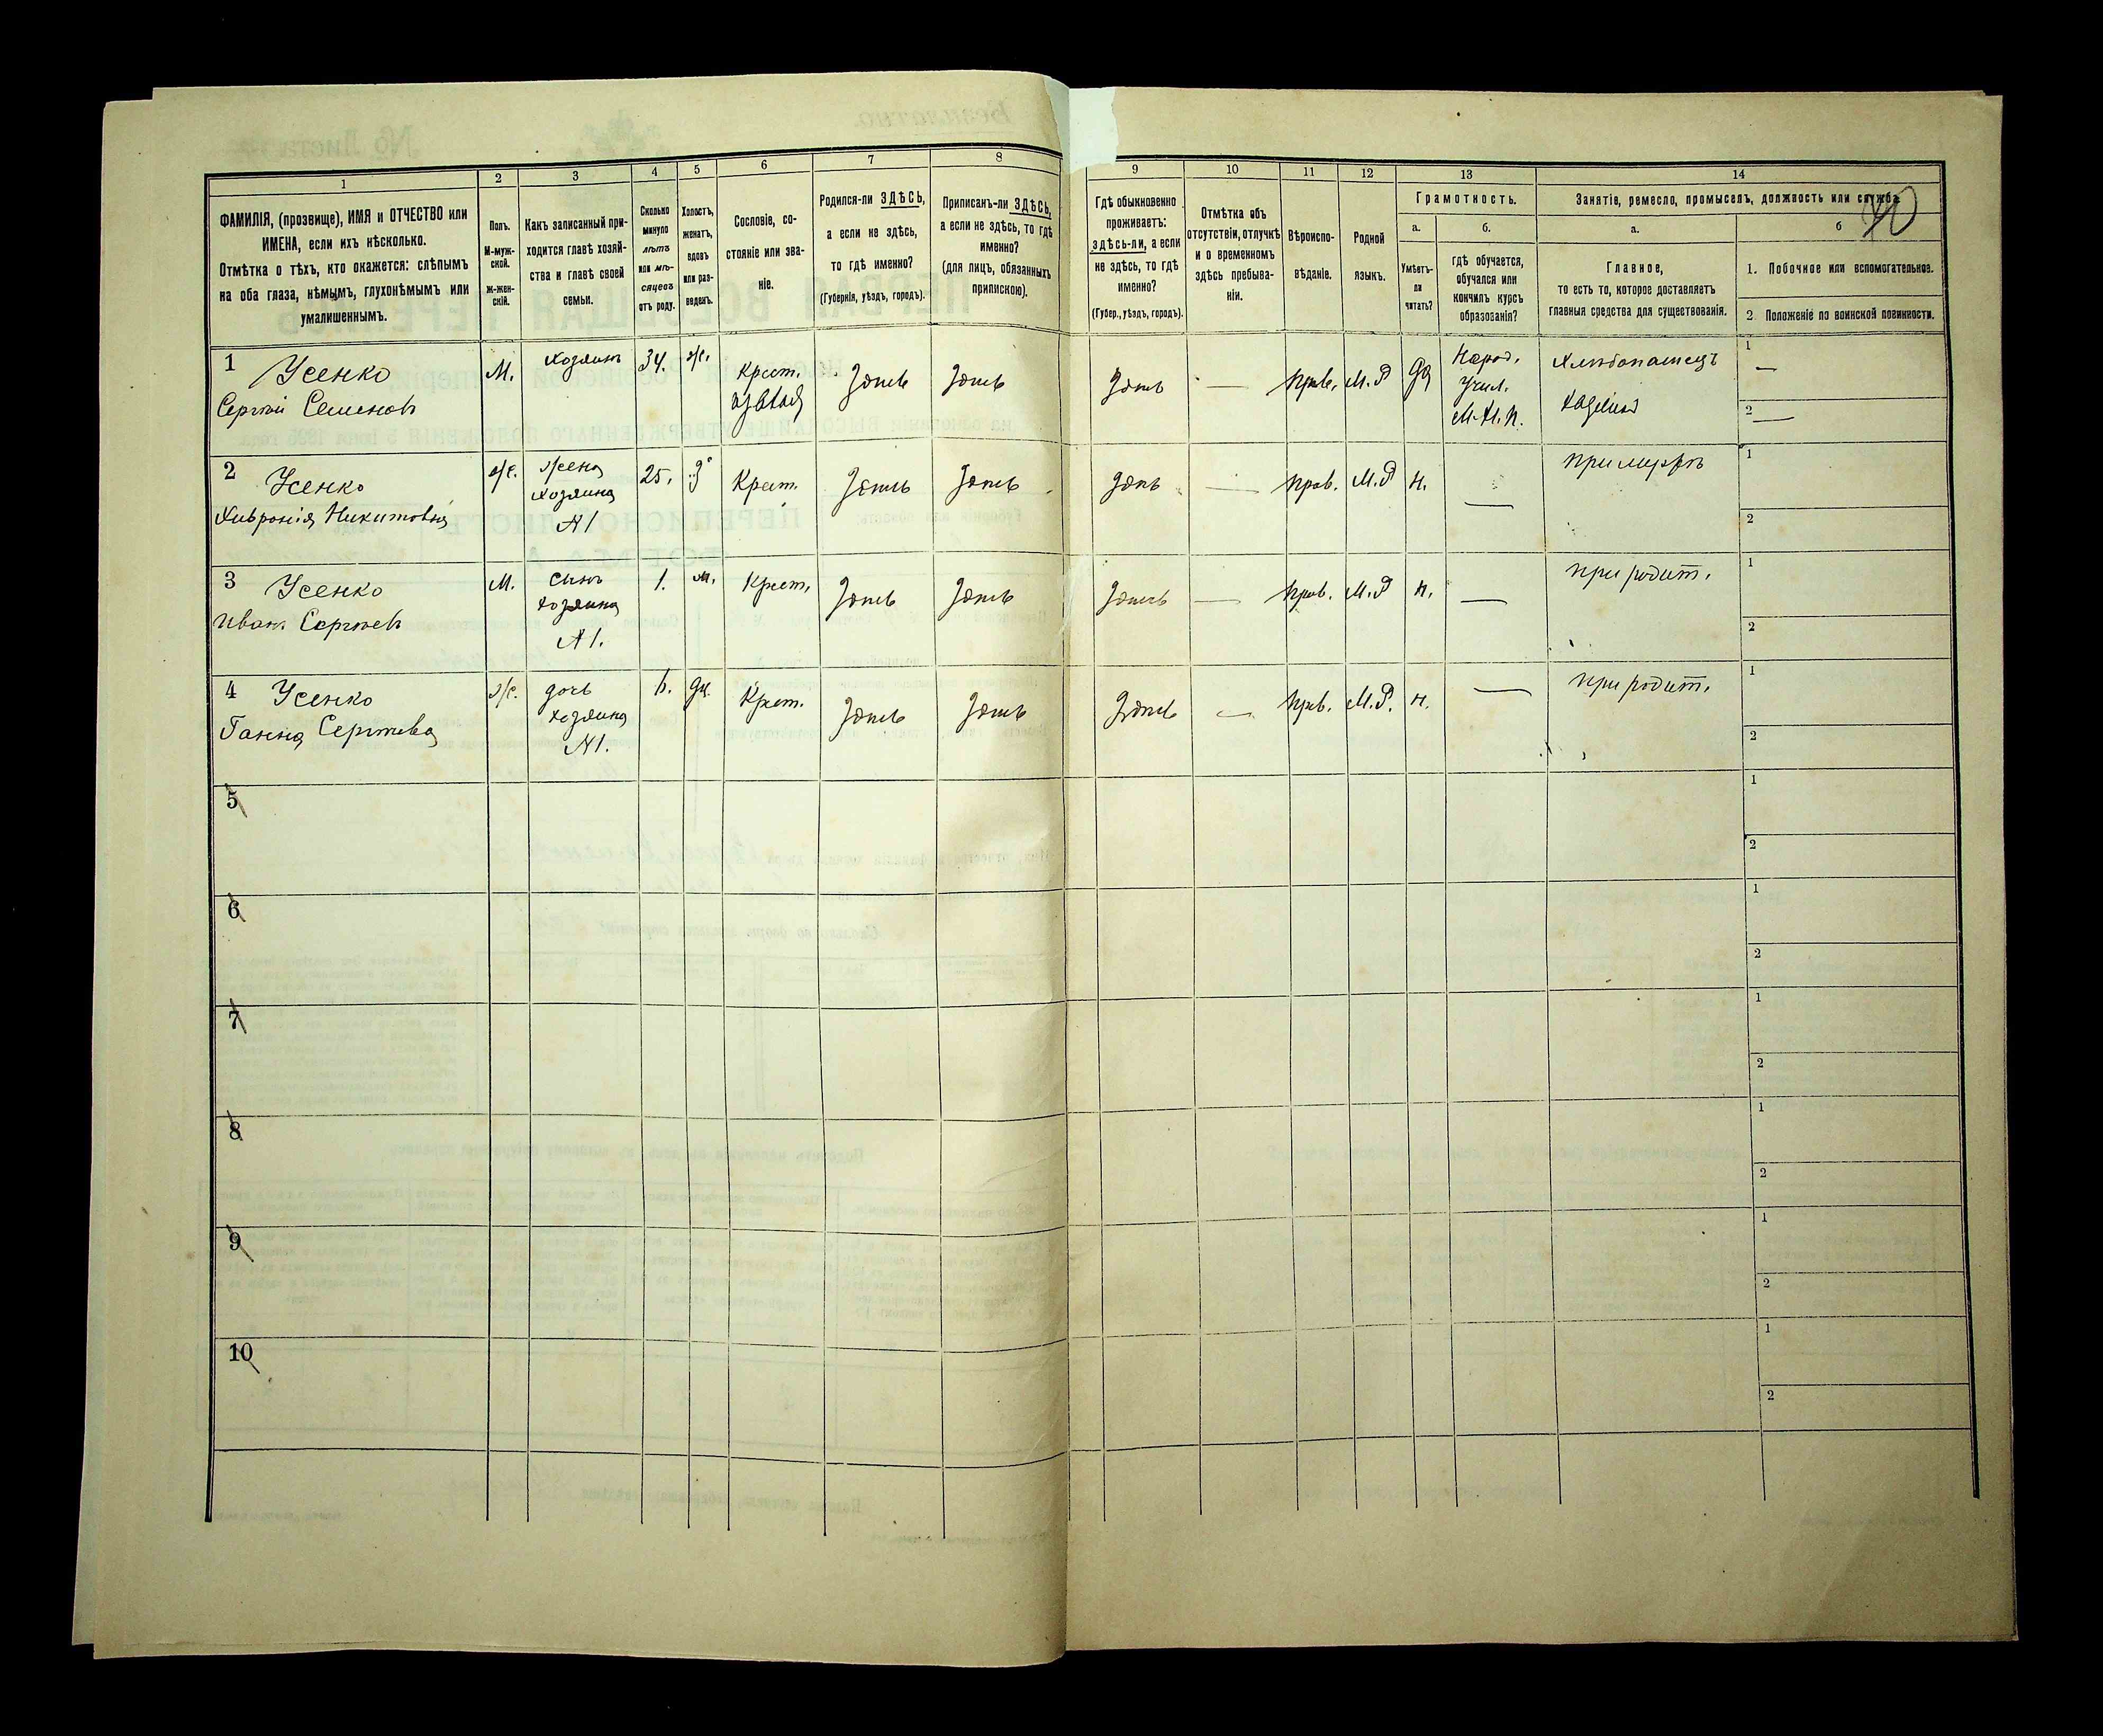 40
1
2
3
4
5
6
7
8
9
10
11
12
13
14
ФАМИЛІЯ, (прозвище), ИМЯ и ОТЧЕСТВО или
ИМЕНА, если ихъ нѣсколько.
Отмѣтка о тѣхъ, кто окажется: слѣпымъ
на оба глаза, нѣмымъ, глухонѣмымъ или
умалишеннымъ.
Полъ.
М-муж-
ской.
ж-жен-
скій.
Какъ записанный при-
ходится главѣ хозяй-
ства и главѣ своей
семьи.
Сколько
минуло
лѣтъ
или мѣ-
сяцевъ
отъ роду.
Холостъ,
женатъ,
вдовъ
или раз-
веденъ.
Сословіе, со-
стояніе или зва-
ніе.
Родился-ли ЗДѢСЬ,
а если не здѣсь,
то гдѣ именно?
(Губернія, уѣздъ, городъ).
Приписанъ-ли ЗДѢСЬ,
а если не здѣсь, то гдѣ
именно?
(для лицъ, обязанныхъ
припискою).
Гдѣ обыкновенно
проживаетъ:
здѣсь-ли, а если
не здѣсь, то гдѣ
именно?
(Губер., уѣздъ, городъ).
Отмѣтка объ
отсутствіи, отлучкѣ
и о временномъ
здѣсь пребыва-
ніи.
Вѣроиспо-
вѣданіе.
Родной
языкъ.
Грамотность.
а.
Умѣетъ-
ли
читать?
б.
гдѣ обучается,
обучался или
кончилъ курсъ
образованія?
Занятіе, ремесло, промыселъ, должность или служба.
а.
Главное,
то есть то, которое доставляетъ
главныя средства для существованія.
б
1. Побочное или вспомогательное.
2. Положеніе по воинской повинности.
1 Усенко
Сергѣй Семеновъ
М.
хозяинъ
34.
ж.
Крест.
Здѣсь
Здѣсь
Здѣсь
—
Прав.
М.Р
Да
Народ.
Учил.
М.Н.П.
Хлѣбопашецъ
хозяинъ
1 —
2 —
2 Усенко
Хивронія Никитовна
ж.
жена
хозяина
№1
25.
з
Крест.
Здѣсь
Здѣсь
Здѣсь
—
Прав.
М.Р
н.
—
при мужѣ
1
2
3 Усенко
Иванъ Сергѣевъ
М.
сынъ
хозяина
№1.
1.
Крест.
Здѣсь
Здѣсь
Здѣсь
—
Прав.
М.Р
н.
—
при родит.
1
2
4 Усенко
Ганна Сергѣева
ж.
дочь
хозяина
№1.
Крест.
Здѣсь
Здѣсь
Здѣсь
—
Прав.
М.Р.
н.
—
при родит.
1
2
5
1
2
6
1
2
7
1
2
8
1
2
9
1
2
10
1
2